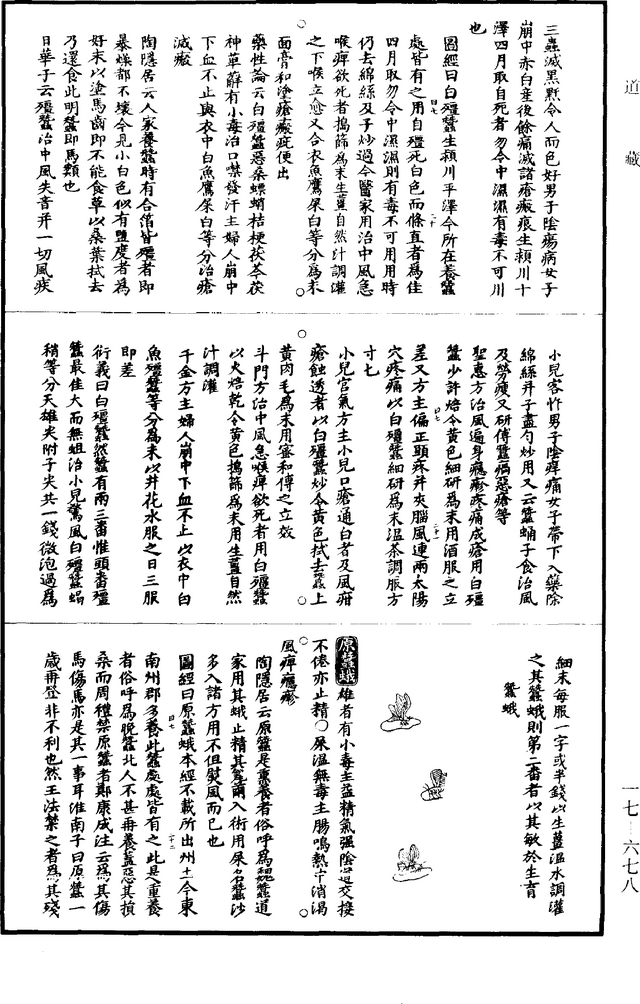 道藏
三蟲滅黑䵟令人面色好男子陰瘍病女子
崩中赤白產後餘痛滅諸瘡瘢痕生潁川平
澤四月取自死者勿令中濕濕有毒不可用
也
圖經曰白殭蠶生潁川平澤今所在養蠶
處皆有之用自殭死白色而條直者爲佳
四月取勿令中濕濕則有毒不可用用時
仍去綿絲及子炒過今醫家用治中風急
喉痺欲死者擣篩爲末生薑自然汁調灌
之下喉立愈又合衣魚鷹屎白等分爲末
面膏和塗瘡瘢疵便出
藥性論云白殭蠶惡桑螵蛸桔梗茯苓茯
神萆薢有小毒治口噤發汗主婦人崩中
下血不止與衣中白魚鷹屎白等分治瘡
滅瘢
陶隱居云人家養蠶時有合箔皆殭者即
暴燥都不壞今見小白色似有鹽度者爲
好末以塗馬齒即不能食草以桑葉拭去
乃還食此明蠶即馬類也
日華子云殭蠶治中風失音并一切風疾
小兒客忤男子陰痒痛女子帶下入藥除
綿絲并子盡勻炒用又云蠶蛹子食治風
及勞瘦又研傅蠶瘑惡瘡等
聖惠方治風遍身癮疹疼痛成瘡用白殭
蠶少許焙令黃色細研爲末用酒服之立
差又方主偏正頭疼并夾腦風連兩太陽
穴疼痛以白殭蠶細研爲末溫茶調服方
寸匕
小兒宮氣方主小兒口瘡通白者及風疳
瘡蝕透者以白殭蠶炒令黃色拭去蠶上
黃肉毛爲末用蜜和傅之立效
斗門方治中風急喉痺欲死者用白殭蠶
以火焙乾令黃色擣篩爲末用生薑自然
汁調灌
千金方主婦人崩中下血不止以衣中白
魚殭蠶等分爲末以井花水服之日三服
即差
衍義曰白殭蠶然蠶有兩三番惟頭番殭
蠶最佳大而無蛆治小兒驚風白殭蠶蝎
稍等分天雄尖附子尖共一錢微泡過爲
細末每服一字或半錢以生薑溫水調灌
之其蠶蛾則第二番者以其敏於生育
蠶蛾
原蠶蛾雄者有小毒主益精氣强陰道交接
不倦亦止精○屎溫無毒主腸鳴熱中消渴
風痺癮疹
陶隱居云原蠶是重養者俗呼爲魏蠶道
家用其蛾止精其翼繭入術用屎名蠶沙
多入諸方用不但熨風而已也
圖經曰原蠶蛾本經不載所出州土今東
南州郡多養此蠶處處皆有之此是重養
者俗呼爲晚蠶北人不甚再養蓋惡其損
桑而周禮禁原蠶者鄭康成注云爲其傷
馬傷馬亦是其一事耳淮南子曰原蠶一
歲再登非不利也然王法禁之者爲其殘
一七—六七八